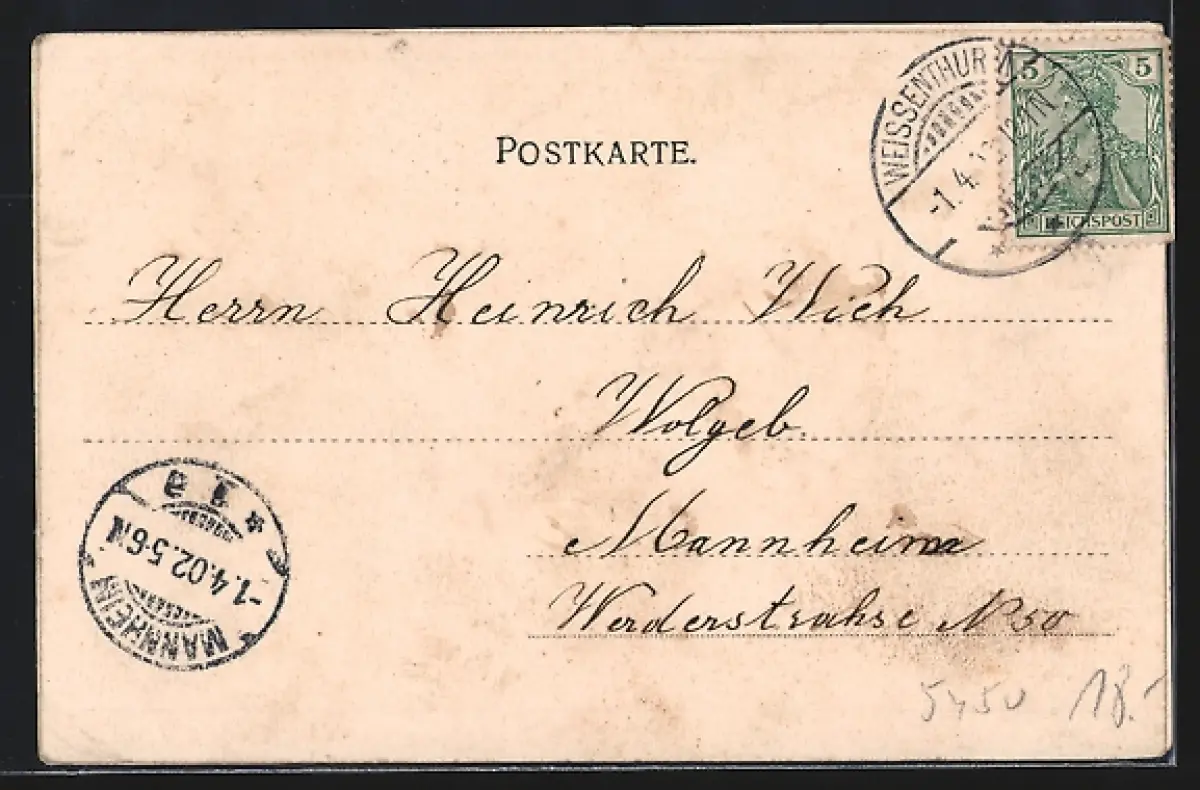 POSTKARTE.
WEISSENTHURM
-1.4.
5 5
REICHSPOST
Herrn Heinrich Wich
Wolgeb.
Mannheim
Werderstrahse No 50
MANNHEIM
-1.4.02.5-6N
5450 18.-